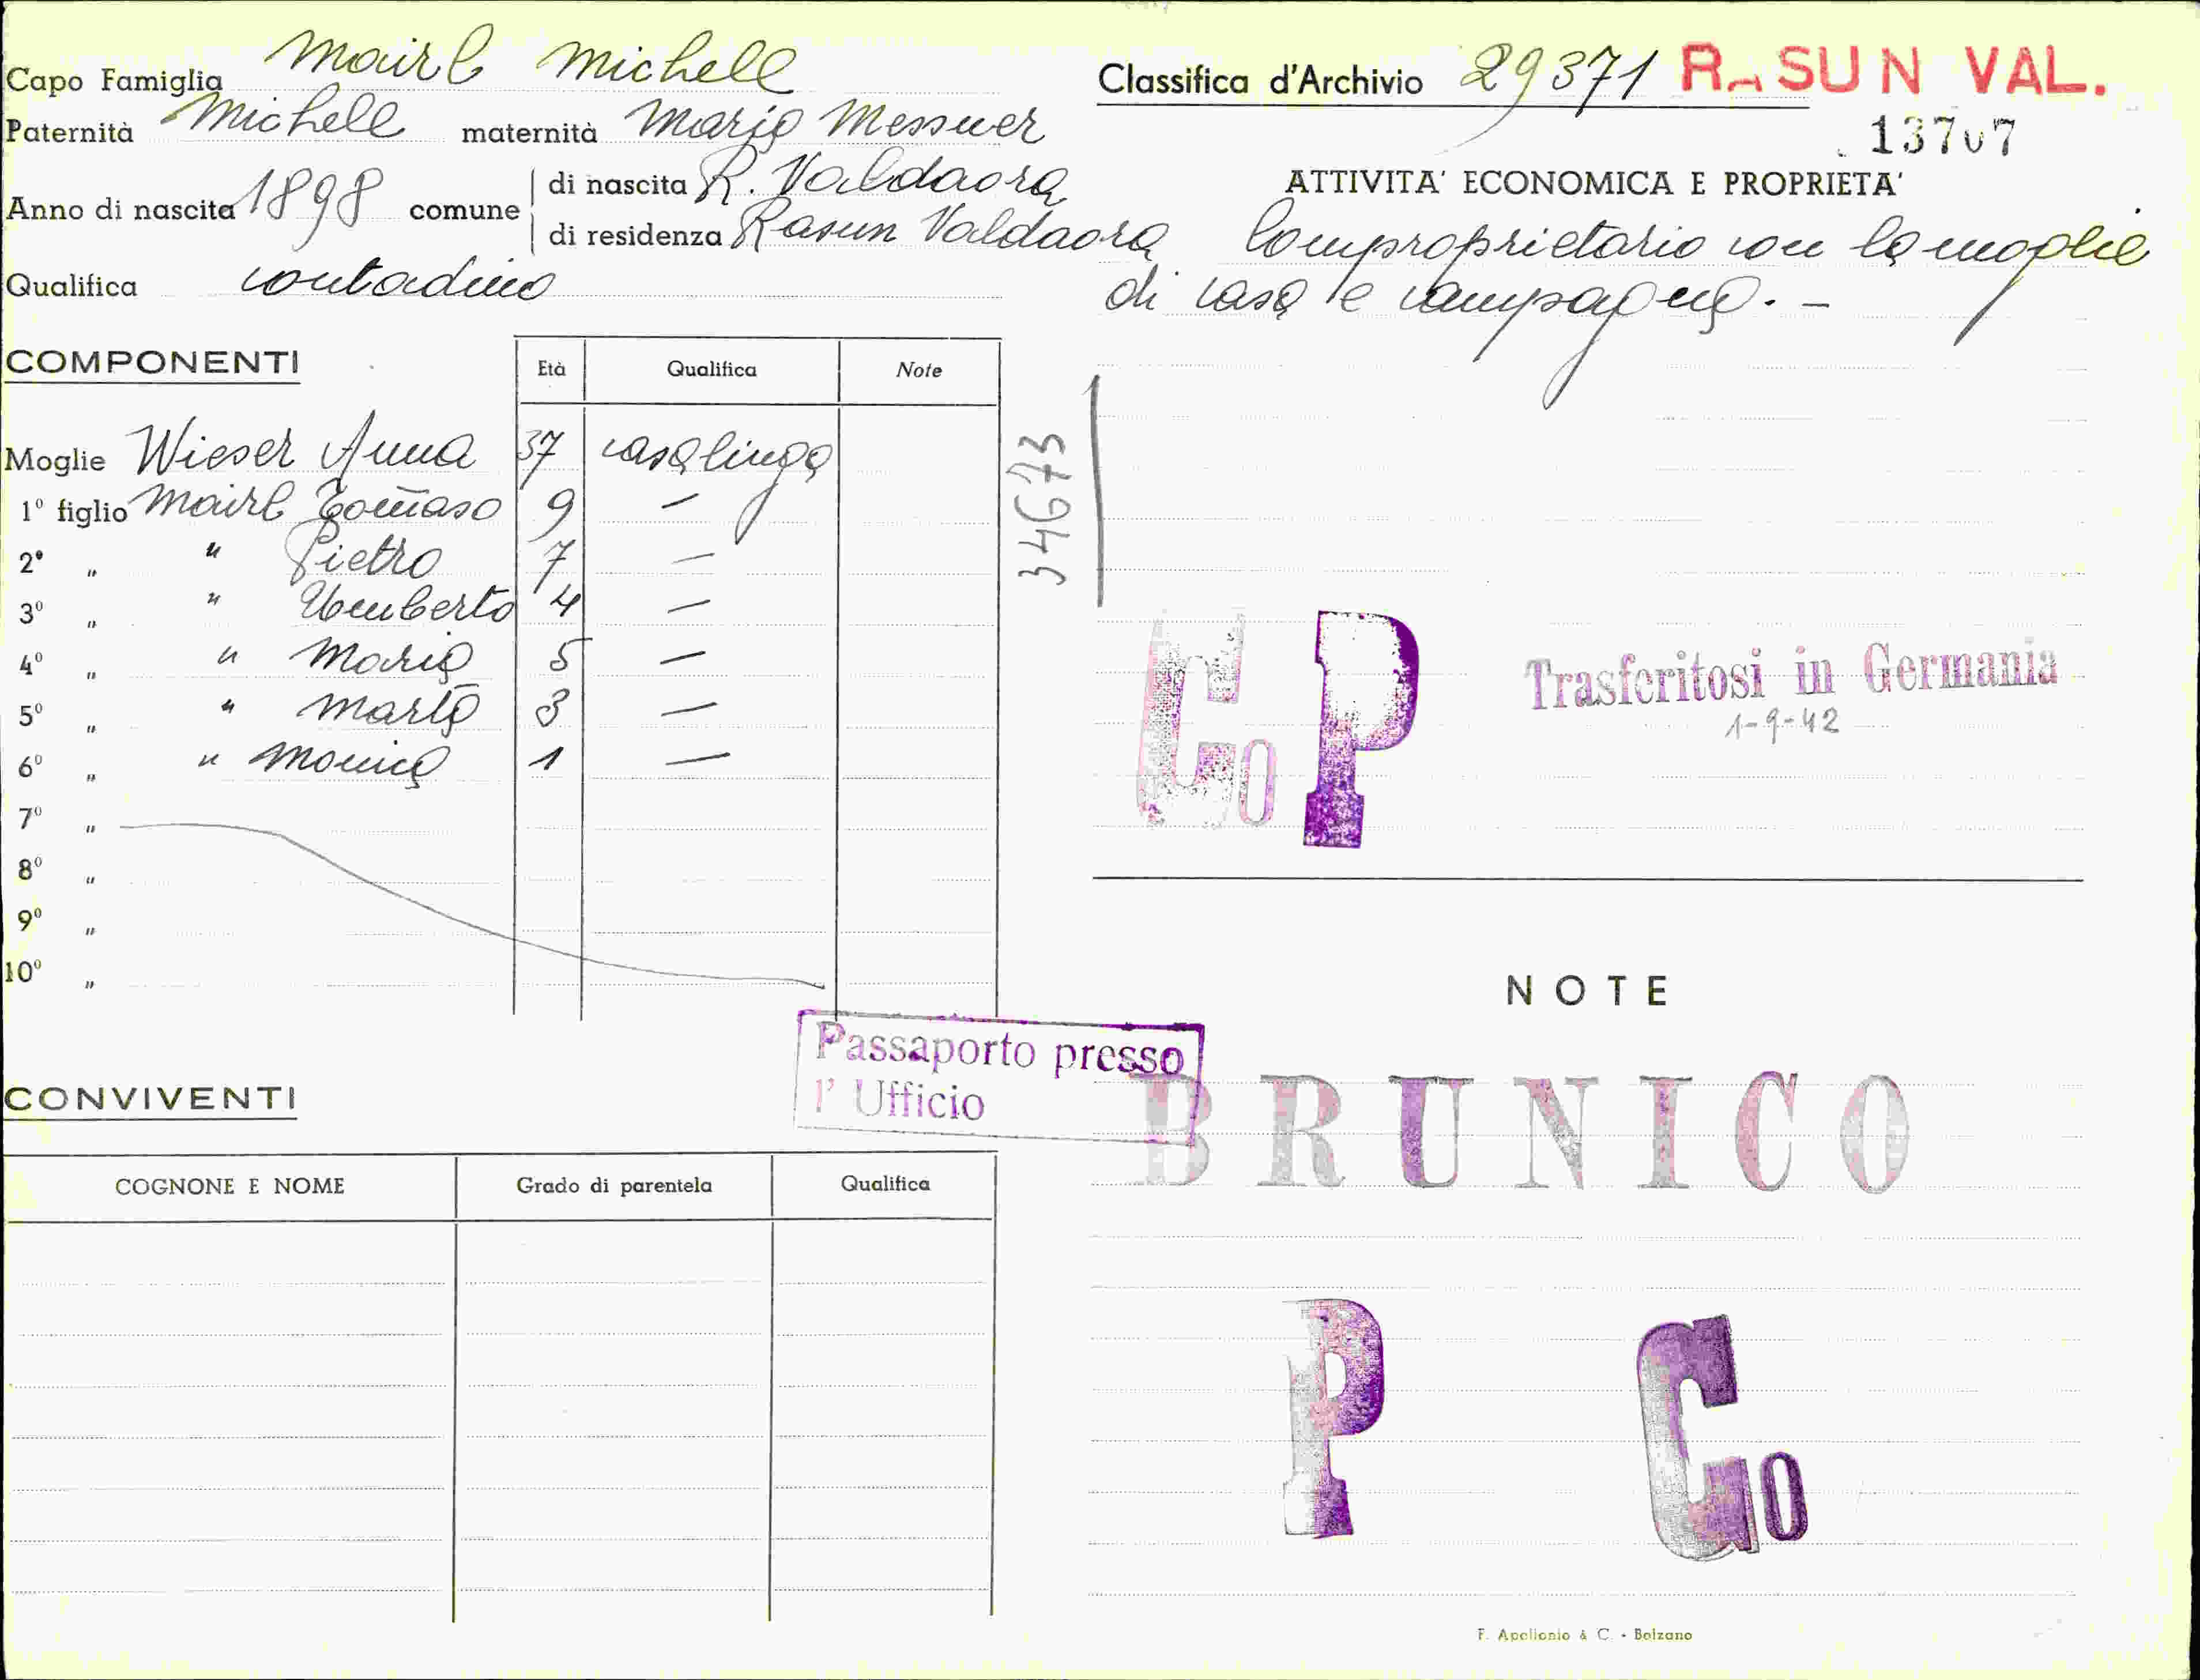 Capo Famiglia Mairl Michele
Paternità Michele maternità Maria Messner
Anno di nascita 1898 comune di nascita R. Valdaora
di residenza Rasun Valdaora
Qualifica contadino
COMPONENTI
Età Qualifica Note
Moglie Wieser Anna 37 casalinga
1º figlio Mairl Tom̄aso 9 —
2º " " Pietro 7 —
3º " " Umberto 4 —
4º " " Maria 5 —
5º " " Marta 3 —
6º " " Monica 1 —
7º "
8º "
9º "
10º "
Passaporto presso
l' Ufficio
CONVIVENTI
COGNONE E NOME Grado di parentela Qualifica
Classifica d'Archivio 29371 RASUN VAL.
13707
ATTIVITA' ECONOMICA E PROPRIETA'
Comproprietario con la moglie
di casa e campagna. —
34673
Co P
Trasferitosi in Germania
1-9-42
NOTE
BRUNICO
P Co
F. Apollonio & C. - Bolzano